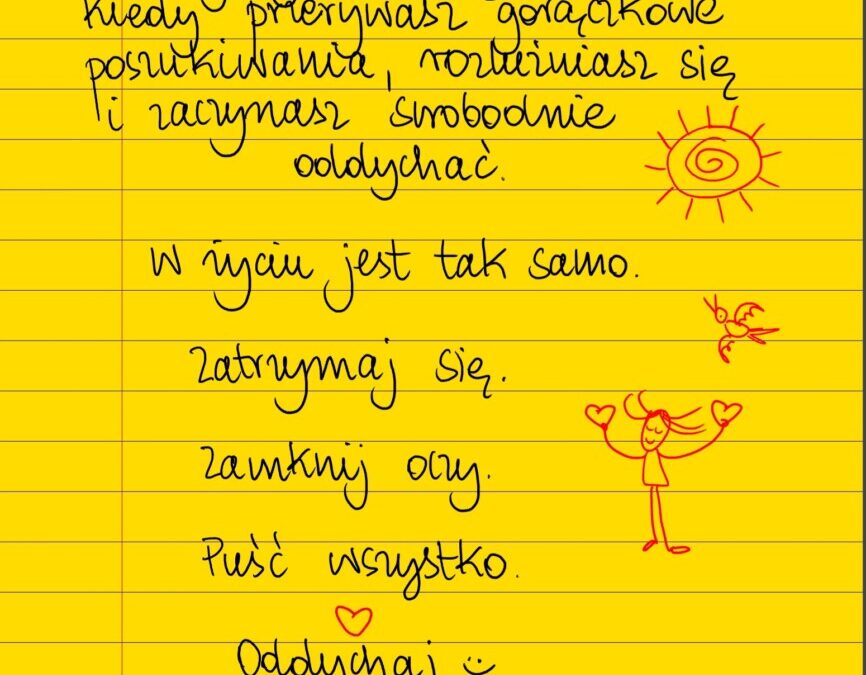 kiedy przerywasz gorączkowe
poszukiwania, rozluźniasz się
i zaczynasz swobodnie
oddychać.
W życiu jest tak samo.
Zatrzymaj się.
Zamknij oczy.
Puść wszystko.
Oddychaj :)